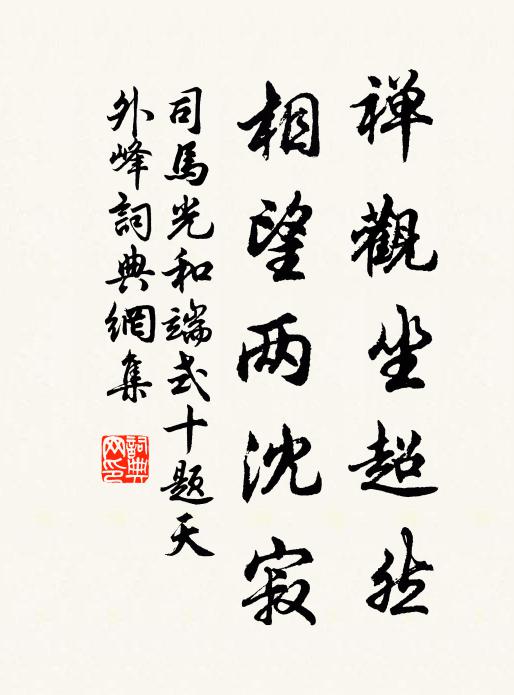 禅觀坐超然
相望两沈寂
司馬光和端式十题天
外峰詞典網集
詞典
网印